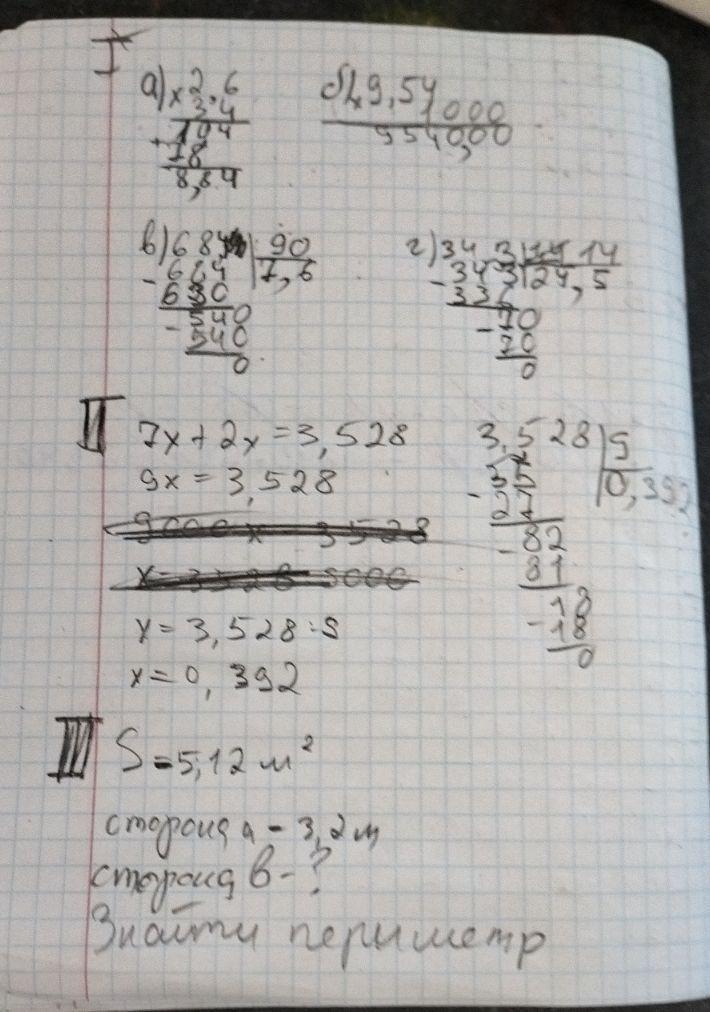 I
а) × 2,6
3,4
104
+ 78
8,84
б) × 9,54
1000
9540,00
в) 684 | 90
- 684 | 7,6
630
- 540
540
0
г) 343 | 14
- 343 | 24,5
336
- 70
70
0
II
7x + 2x = 3,528
9x = 3,528
9000x = 3528
x = 3528 : 9000
x = 3,528 : 9
x = 0,392
3,528 | 9
- 35 | 0,392
27
- 82
81
- 18
18
0
III
S = 5,12 м²
сторона а - 3,2 м
сторона в - ?
Знайти периметр